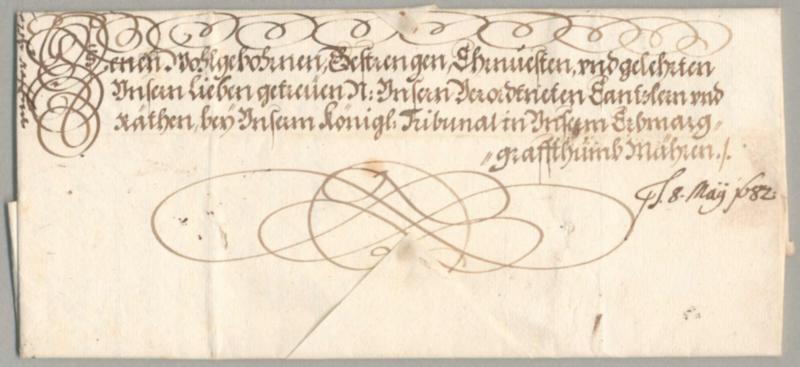 Denen Wohlgebohrnen, Gestrengen, Ehrnuesten, vnd gelehrten
Vnsern Lieben getreuen N: Vnsern Verordtneten Cantzlern vnd
Räthen, bey Vnserm Königl: Tribunal in Vnserm Erbmarg=
=graffthumb Mähren./.
8. Maÿ 1682